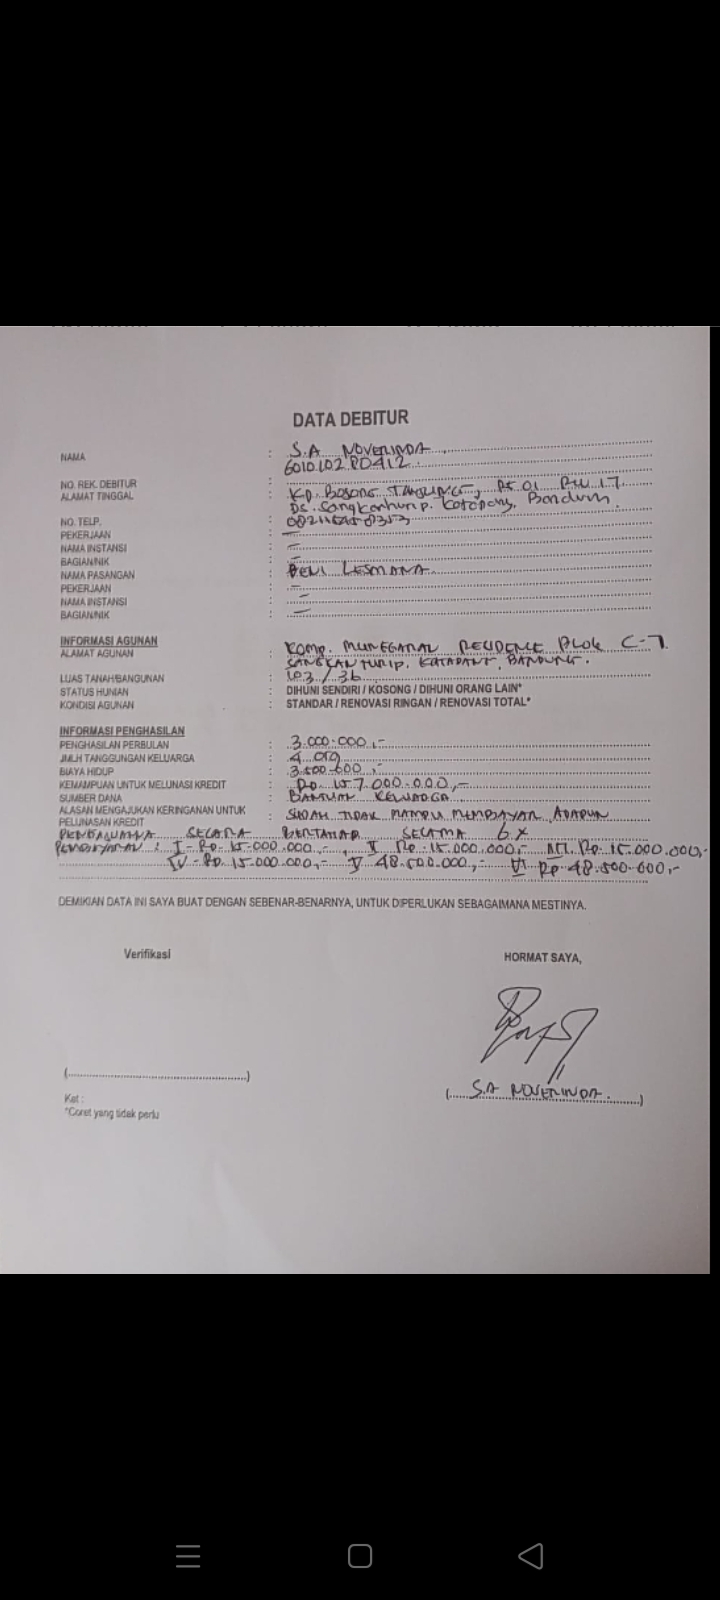 DATA DEBITUR
NAMA : S.A NOVERINDA
6010102PD412
NO. REK. DEBITUR :
ALAMAT TINGGAL : KP. Bojong TANJUNG, Rt 01 RW 17
Ds. Sangkanhurip. Katapang. Bandung
NO. TELP. :
PEKERJAAN : –
NAMA INSTANSI : –
BAGIAN/NIK : –
NAMA PASANGAN : DENI LESMANA
PEKERJAAN : –
NAMA INSTANSI : –
BAGIAN/NIK : –
INFORMASI AGUNAN
ALAMAT AGUNAN : Komp. RESIDENCE BLOK C-7
SANGKAN HURIP. KATAPANG, BANDUNG.
LUAS TANAH/BANGUNAN : 103/36
STATUS HUNIAN : DIHUNI SENDIRI / KOSONG / DIHUNI ORANG LAIN*
KONDISI AGUNAN : STANDAR / RENOVASI RINGAN / RENOVASI TOTAL*
INFORMASI PENGHASILAN
PENGHASILAN PERBULAN : 3.000.000,-
JMLH TANGGUNGAN KELUARGA : 4 org
BIAYA HIDUP : 3.500.000,-
KEMAMPUAN UNTUK MELUNASI KREDIT : Rp. 157.000.000,-
SUMBER DANA : BANTUAN KELUARGA
ALASAN MENGAJUKAN KERINGANAN UNTUK : SUDAH TIDAK MAMPU MEMBAYAR, ADAPUN
PELUNASAN KREDIT
SECARA BERTAHAP SELAMA 6x
PEMBAYARAN : I - Rp. 15.000.000,-, II Rp. 15.000.000,- III. Rp. 15.000.000,-
IV - Rp. 15.000.000,- V 48.500.000,- VI Rp 48.500.000,-
DEMIKIAN DATA INI SAYA BUAT DENGAN SEBENAR-BENARNYA, UNTUK DIPERLUKAN SEBAGAIMANA MESTINYA.
Verifikasi
HORMAT SAYA,
(..........)
( S.A NOVERINDA. )
Ket :
*Coret yang tidak perlu